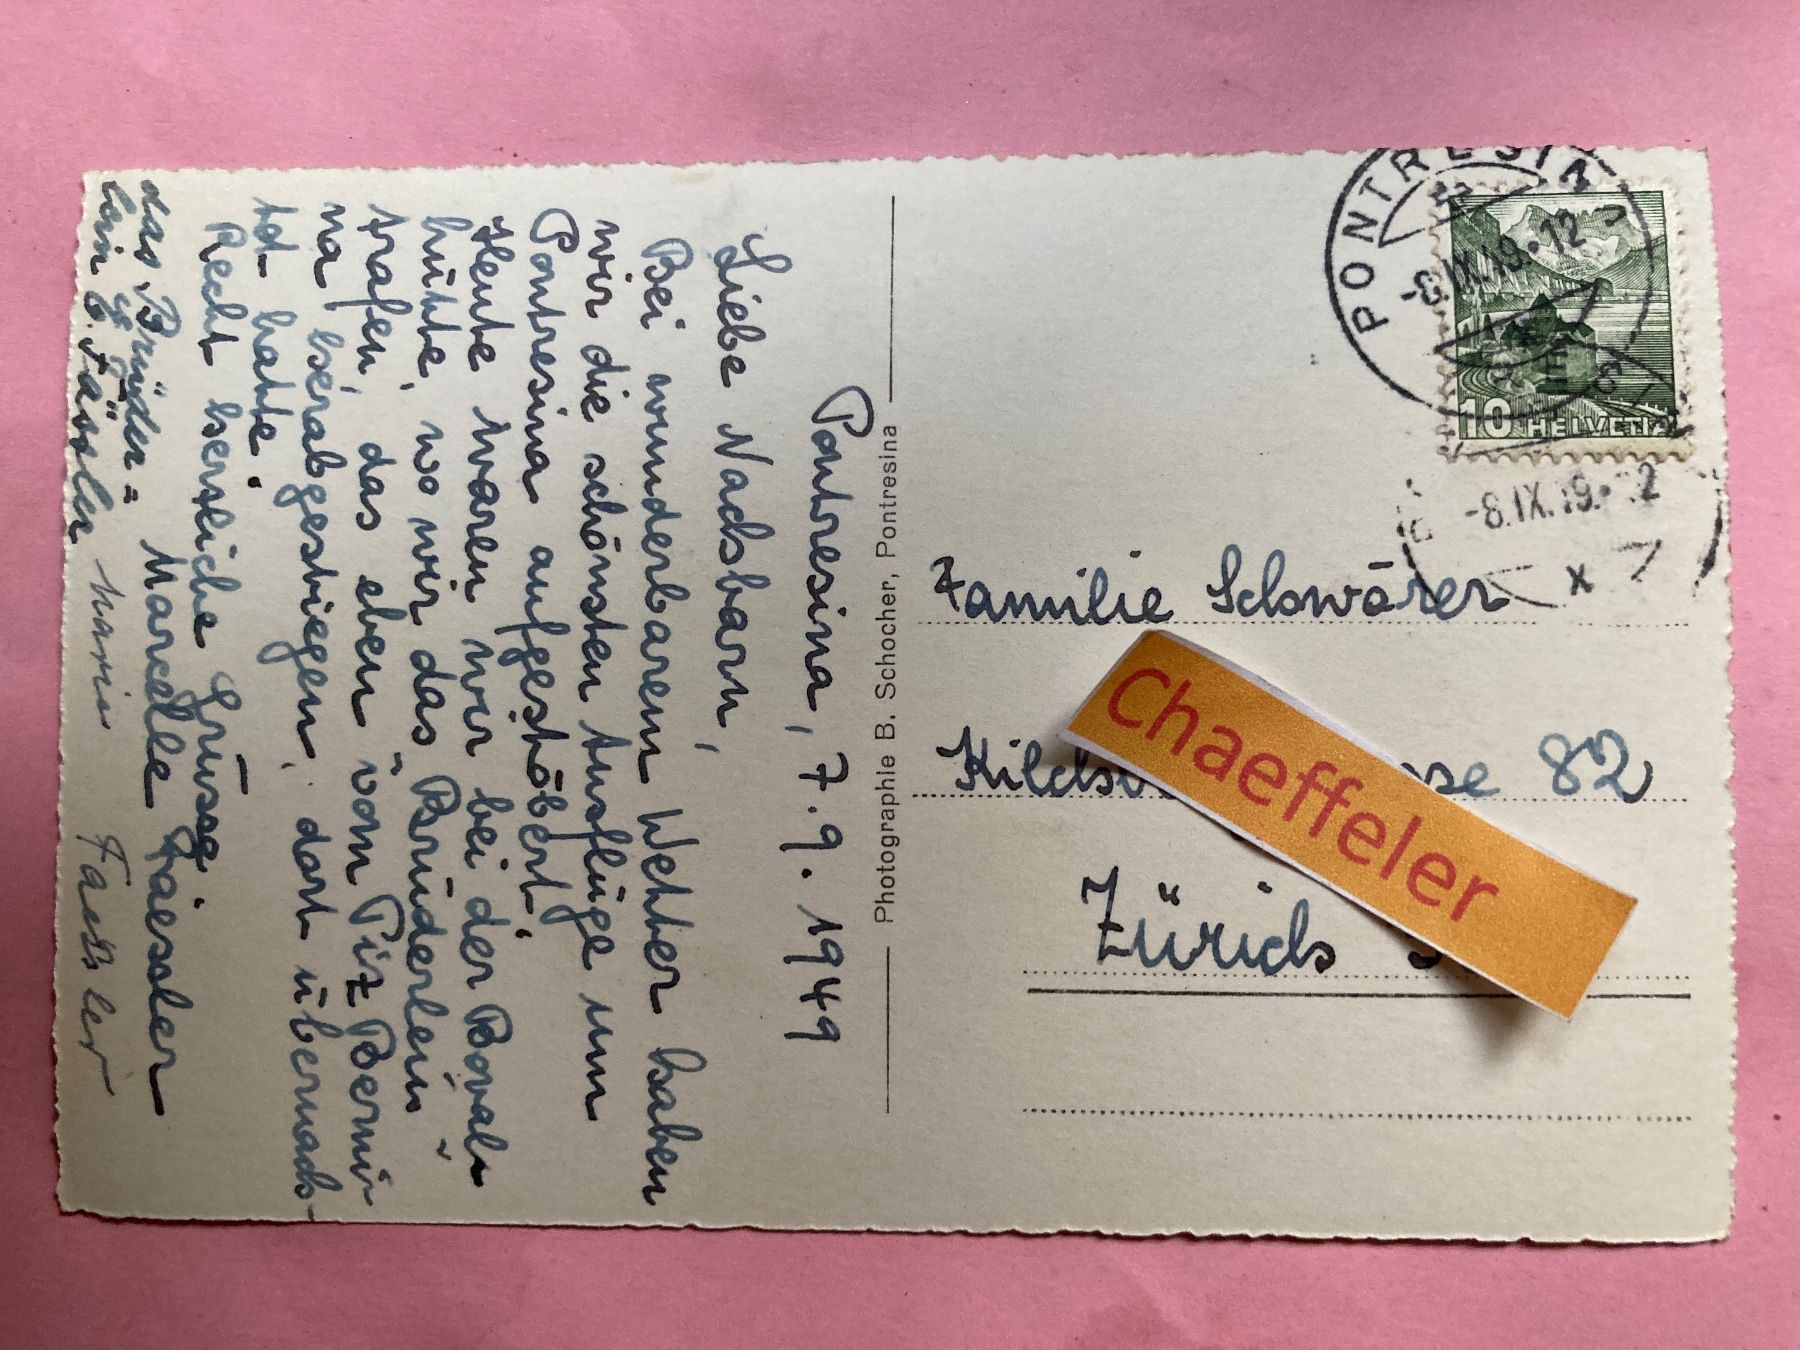 Pontresina, 7.9.1949
Liebe Nachbarn,
Bei wunderbarem Wetter haben
wir die schönsten Ausflüge um
Pontresina aufgestöbert.
Heute waren wir bei der Boval-
hütte, wo wir das Brüderlein
trafen, das eben vom Piz Berni-
na herabgestiegen, dort übernach-
tet hatte.
Recht herzliche Grüsse,
Marcelle Faessler
das Brüder=
lein E. Fässler
Marie Fässler
Photographie B. Schocher, Pontresina
PONTRESINA
-8.IX.49.12
10 HELVETIA
-8.IX.49.12
Familie Schwärer
82
Zürich
Chaeffeler